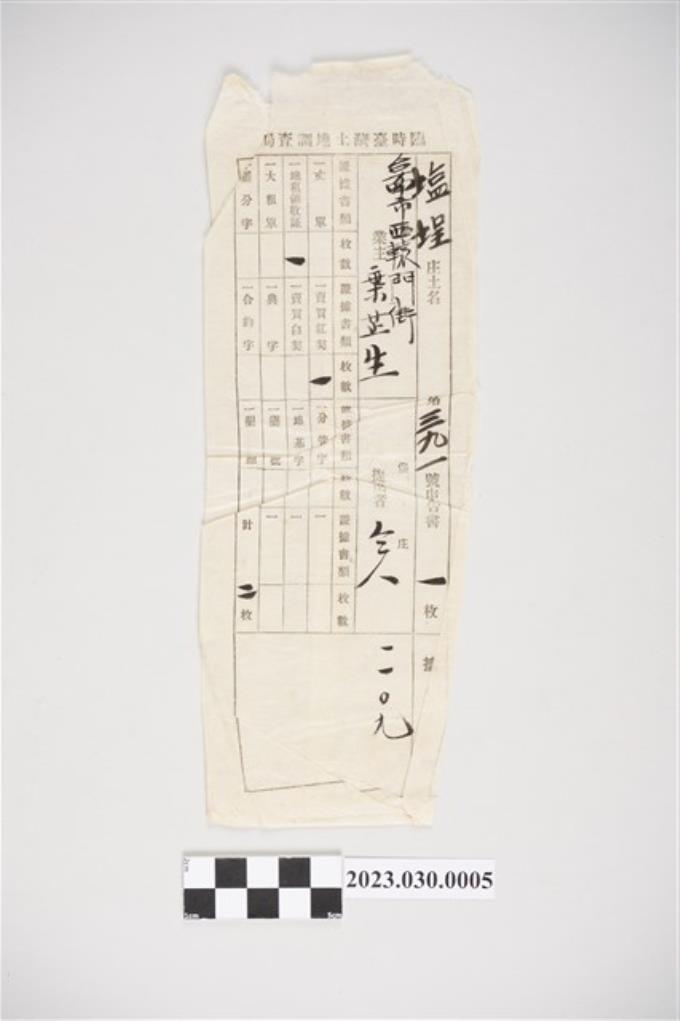 臨時臺灣土地調查局
塩埕
庄土名
第三九一號申告書
一枚
業主
西轅門街
葉芷生
庄
仝人
二一〇九
證據書類 枚數 證據書類 枚數 證據書類 枚數 證據書類 枚數
一丈單
一賣買紅契 一
一分管字
一
一地租領收証 一
一賣買白契
一地基字
一
一大租單
一典字
一
一鬮分字
一合約字
計 二枚
0cm
5cm
2023.030.0005